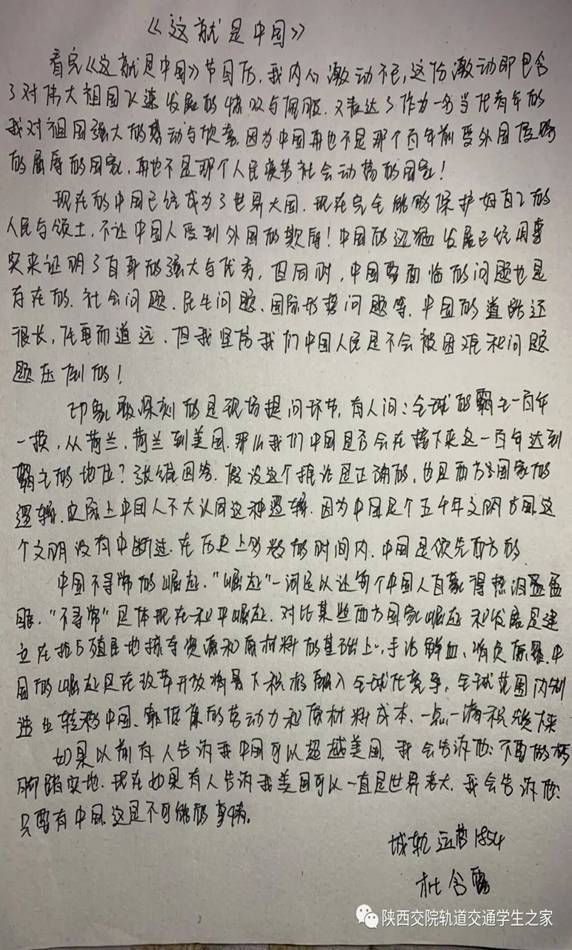 《这就是中国》
看完《这就是中国》节目后,我内心激动不已,这份激动即包含
了对伟大祖国飞速发展的惊叹与佩服,又表达了作为一名当代青年的
我对祖国强大的感动与欣喜,因为中国再也不是那个百年前受外国侵略
的屈辱的国家,再也不是那个人民疾苦社会动荡的国家!
现在的中国已经成为了世界大国,现在完全能够保护好自己的
人民与领土,不让中国人受到外国的欺辱!中国的迅猛发展已经用事
实来证明了自身的强大与优秀,但同时,中国要面临的问题也是
存在的,社会问题、民生问题、国际形势问题等,中国的道路还
很长,任重而道远,但我坚信我们中国人民是不会被困难和问题
题压倒的!
印象最深刻的是现场提问环节,有人问:全球的霸主一百年
一换,从荷兰,荷兰到美国,那么我们中国是否会在接下来这一百年达到
霸主的地位?张维回答,假设这个推论是正确的,也是西方国家的
逻辑,实际上中国人不大认同这种逻辑,因为中国是个五千年文明古国,这
个文明没有中断过,在历史上多数的时间内,中国是领先西方的
中国不寻常的崛起,"崛起"一词足以让每个中国人自豪得热泪盈盈
眶,"不寻常"是体现在和平崛起,对比某些西方国家崛起和发展是建
立在抢占殖民地掠夺资源和原材料的基础上,手沾鲜血,肩负原罪,中
国的崛起是在改革开放背景下积极融入全球化竞争,全球范围内制
造业转移中国,靠低廉的劳动力和原材料成本,一点一滴积攒下来
如果以前有人告诉我中国可以超越美国,我会告诉他:不要做梦
脚踏实地,现在如果有人告诉我美国可以一直是世界老大,我会告诉他:
只要有中国,这是不可能的事情。
城轨运营1854
杜
陕西交院轨道交通学生之家